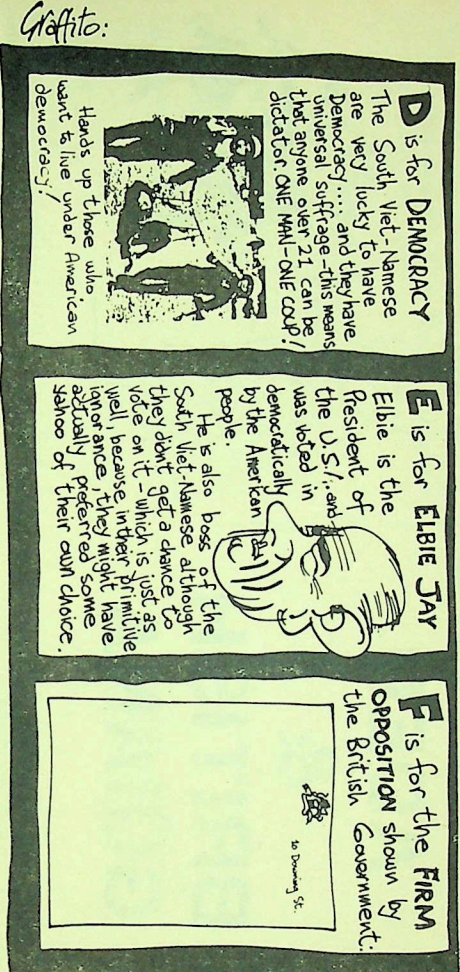 Graffito:
D is for DEMOCRACY
The South Viet-Namese
are very lucky to have
Democracy.... and they have
universal suffrage - this means
that anyone over 21 can be
dictator. ONE MAN - ONE COUP!
Hands up those who
want to live under American
democracy!
E is for ELBIE JAY
Elbie is the
President of
the U.S.!.. and
was voted in
democratically
by the American
people.
He is also boss of the
South Viet-Namese although
they didn't get a chance to
vote on it - which is just as
well, because, in their primitive
ignorance, they might have
actually preferred some
yahoo of their own choice.
F is for the FIRM
OPPOSITION shown by
the British Government:
10 Downing St.